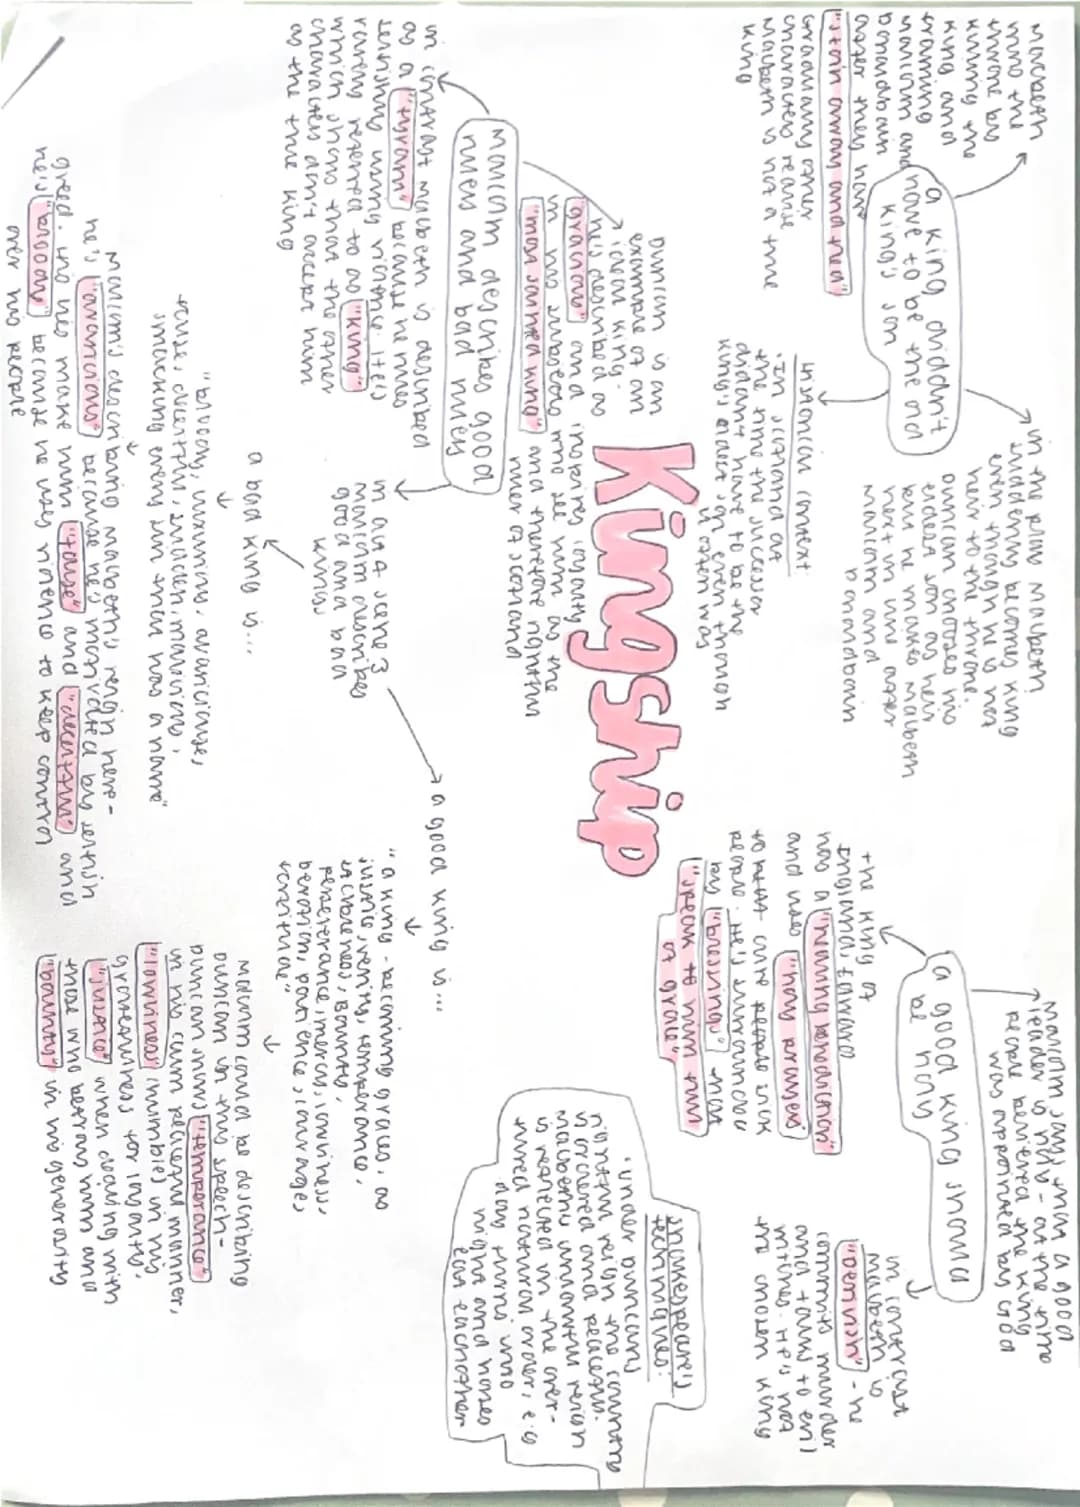 Kingship
a king diddn't
have to be the old
king's son
macbeth
into the
throne by
killing the
king and
framing
malcolm and
Donaldbain
after they have
"stoln away and fled"
Gradually other
characters realise
Macbeth is not a true
king
historical context
• In scotland at
the time the successor
diddn't have to be the
king's eldest son even though
it often was
in the play Macbeth
suddenly becomes king
even though he is not
heir to the throne.
Duncan chooses his
eldest son as heir
but he makes Macbeth
next in line after
Malcolm and
Donaldbain
a good king should
be holy
the king of
England, Edward
has a "healing benediction"
and uses "holy prayers"
to help cure people sick
people. He's surrounded
by "blessings" that
"speak to him full
of grace"
Malcolm says that a good
leader is holy - at the time
people believed the king
was appointed by God
in contrast
Macbeth is
"devilish" - he
commits murder
and turns to evil
witches. He's not
the chosen king
Malcolm describes good
rulers and bad rulers
Duncan is an
example of an
ideal king.
he's described as
"gracious" and inspires loyalty
in his subjects who see him as the
"most sainted king" and therefore rightful
ruler of scotland
in contrast Macbeth is described
as a "tyrant" because he rules
selfishly using violence. It's
rarely referred to as "king"
which shows that the other
characters don't accept him
as the true king
in act 4 scene 3
malcolm describes
good and bad
kings
a bad king is...
"bloody, luxurious, avaricious,
false, deceitful, sudden, malicious,
smacking every sin that has a name"
Malcolm's describing macbeth's reign here-
he's "avaricious" because he's motivated by selfish
greed. His lies make him "false" and "deceitful" and
he's "bloody" because he uses violence to keep control
over his people
a good king is...
"a king - becoming graces, as
justice, verity, temperance,
stableness, Bounty,
perseverance, mercy, lowliness,
devotion, patience, courage,
fortitude"
Malcolm could be describing
Duncan in this speech-
Duncan shows "temperance"
in his calm peaceful manner,
"lowliness" (humble) in his
gratefulness for loyalty,
"justice" when dealing with
those who betray him and
"bounty" in his generosity
Shakespeare's
techniques:
• under Duncan's
rightful reign the country
is ordered and peaceful.
Macbeth's unlawful reign
is reflected in the over-
turned natural order, e.g
day turns into
night and horses
eat eachother